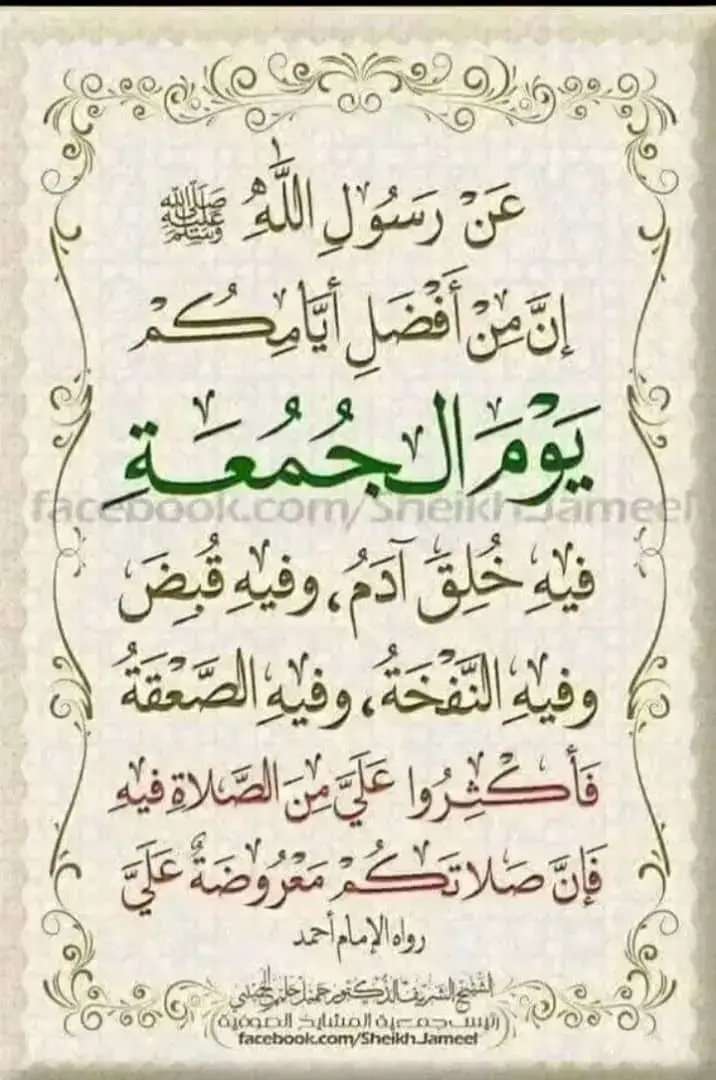 عَنْ رَسُولِ اللَّهِ ﷺ
إِنَّ مِنْ أَفْضَلِ أَيَّامِكُمْ
يَوْمَ الْجُمُعَةِ
facebook.com/SheikhJameel
فِيهِ خُلِقَ آدَمُ، وَفِيهِ قُبِضَ
وَفِيهِ النَّفْخَةُ، وَفِيهِ الصَّعْقَةُ
فَأَكْثِرُوا عَلَيَّ مِنَ الصَّلَاةِ فِيهِ
فَإِنَّ صَلَاتَكُمْ مَعْرُوضَةٌ عَلَيَّ
رواه الإمام أحمد
الشيخ الشريف الدكتور جميل حليم الحسيني
رئيس جمعية المشايخ الصوفية
facebook.com/Sheikh.Jameel